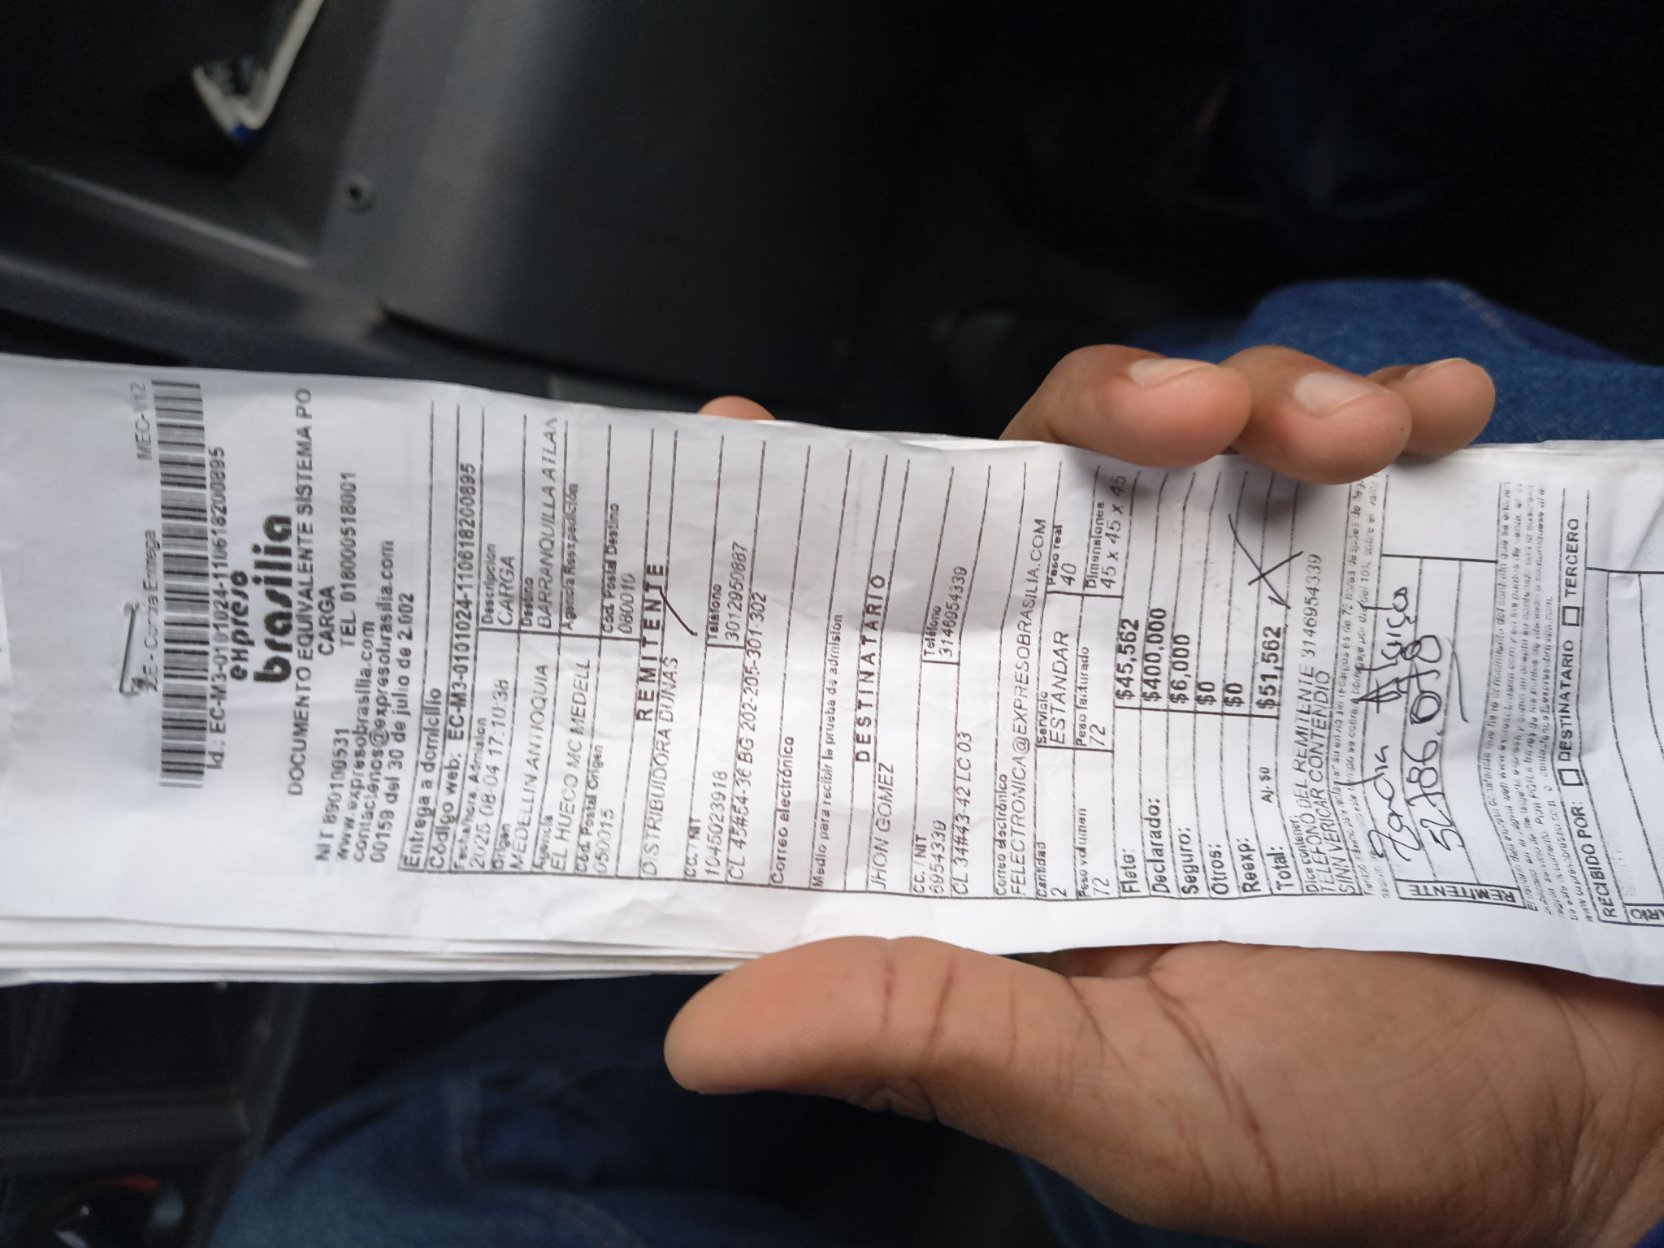 CE - Contra Entrega MEC-V12
Id.: EC-M3-0101024-110618200895
expreso
brasilia
DOCUMENTO EQUIVALENTE SISTEMA PO
CARGA
NIT 890100531 TEL. 018000518001
www.expresobrasilia.com
contactenos@expresobrasilia.com
00159 del 30 de julio de 2.002
Entrega a domicilio
Código web: EC-M3-0101024-110618200895
Fecha/hora Admision Descripción
2025-08-04 17:10:38 CARGA
Origen Destino
MEDELLIN ANTIOQUIA BARRANQUILLA ATLAN
Agencia Agencia Recepción
EL HUECO MC MEDELL
Cód. Postal Origen Cód. Postal Destino
050015 080010
REMITENTE
DISTRIBUIDORA DUNAS
CC. / NIT Teléfono
1045023918 3012950887
CL 45#54-36 BG 202-205-301-302
Correo electrónico
Medio para recibir la prueba de admision
DESTINATARIO
JHON GOMEZ
CC. / NIT Teléfono
6954339 3146954339
CL 34#43-42 LC 03
Correo electrónico
FELECTRONICA@EXPRESOBRASILIA.COM
Cantidad Servicio Peso real
2 ESTANDAR 40
Peso volumen Peso facturado Dimensiones
72 72 45 x 45 x 45
Flete: $45,562
Declarado: $400,000
Seguro: $6,000
Otros: $0
Reexp: $0
Total: Aj. $0 $51,562
Dice contener:
TELEFONO DEL REMITENTE 3146954339
SIN VERICAR CONTENDIO
52.186.078
REMITENTE
RECIBIDO POR: DESTINATARIO TERCERO